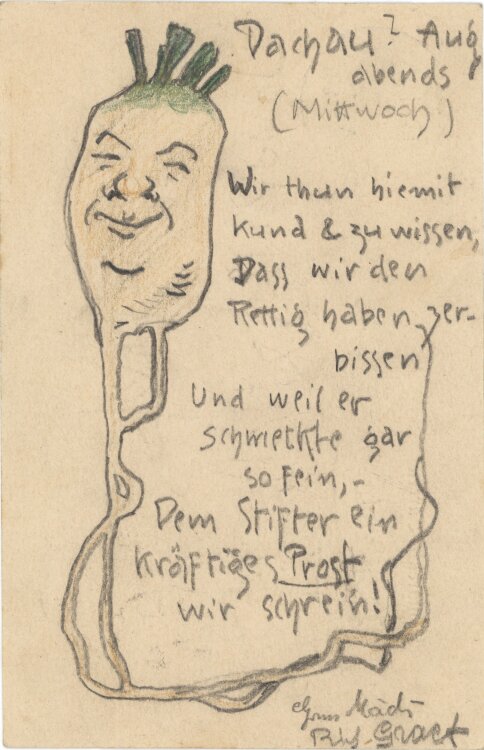 Dachau? Aug
abends
(Mittwoch)
Wir thun hiemit
Kund & zu wissen,
Dass wir den
Rettig haben zer-
bissen
Und weil er
schmeckte gar
so fein,-
Dem Stifter ein
kräftiges Prost
wir schrein!